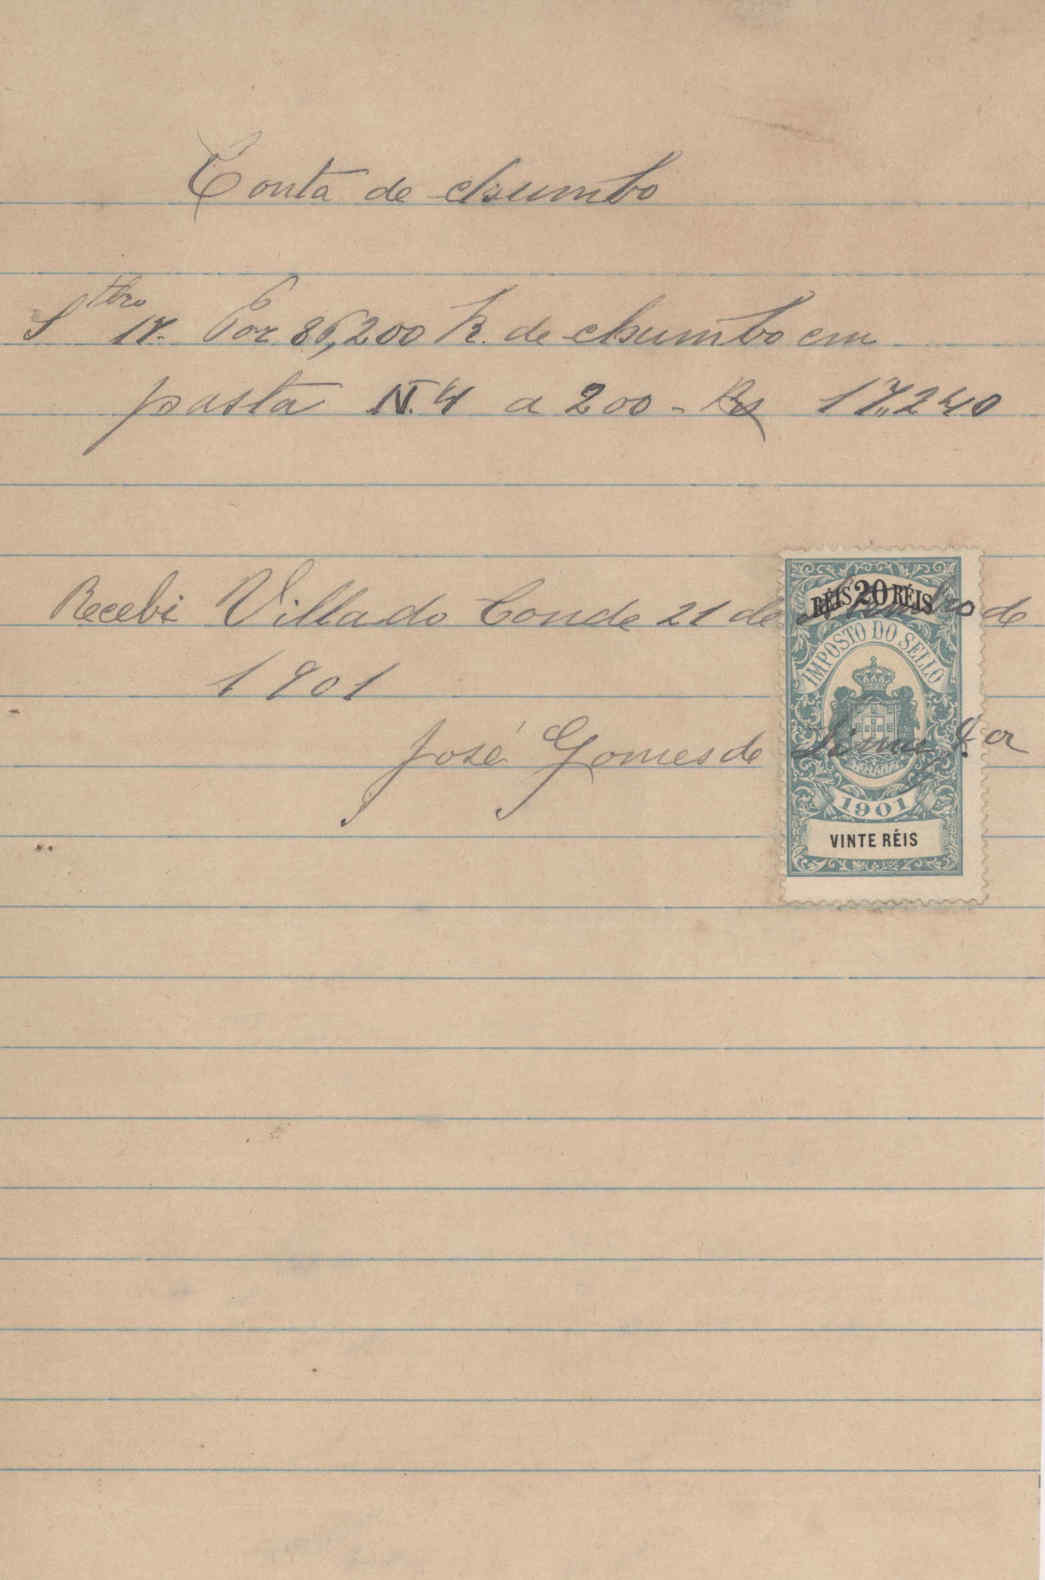 Conta de chumbo
Stbro 17. Por 86,200 K. de chumbo em
pasta N.4 a 200 - Rs 17,240
Recebi Villa do Conde 21 de de
1901
José Gomes de
RÉIS 20 RÉIS
IMPOSTO DO SELLO
1901
VINTE RÉIS